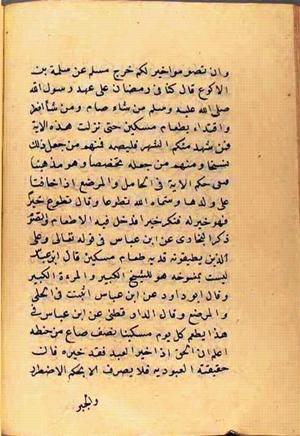 وان تصوموا خير لكم خرج مسلم عن سلمة بن
الاكوع قال كنا في رمضان على عهد رسول الله
صلى الله عليه وسلم من شاء صام ومن شاء افطر
وافتداء بطعام مسكين حتى نزلت هذه الاية
فمن شهد منكم الشهر فليصمه فمنهم من جعل ذلك
نسخا ومنهم من جعله مخصصا وهو مذهبنا
حكم الاية في الحامل والمرضع اذا خافتا
على ولدها وسماه الله تطوعا وقال تطوع خير
فهو خير له فنكر خيرا فدخل فيه الاطعام والصوم
ذكر البخاري عن ابن عباس في قوله تعالى وعلى
الذين يطيقونه فدية طعام مسكين قال ابن عباس
ليست بمنسوخه هو للشيخ الكبير والمرءة الكبير
وقال ابو داود عن ابن عباس اثبتت في الحبلى
والمرضع وقال الدار قطنى عن ابن عباس في
هذا يطعم كل يوم مسكينا نصف صاع من حنطه
اعلم ان الحق اذا خير العبد فقد حيره فان
حقيقته العبوديه فلا يتصرف الا بحكم الاضطرار
والجبر